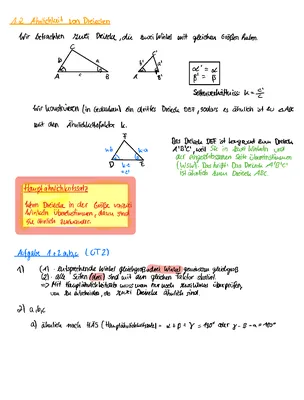 1.2 Ähnlichkeit von Dreiecken
Wir betrachten zwei Dreiecke, die zwei Winkel mit gleichen Größen haben.
C
C'
A
c
B
A'
c'
B'
α' = α
β' = β
Seitenverhältnis: k = c'/c
Wir konstruieren (in Gedanken) ein drittes Dreieck DEF, sodass es ähnlich ist zu ABC
mit dem Ähnlichkeitsfaktor k.
F
k·b
k·a
D
E
k·c
= c'
Das Dreieck DEF ist kongruent zum Dreieck
A'B'C', weil sie in zwei Winkeln und
der eingeschlossenen Seite übereinstimmen
(WSW). Das heißt: Das Dreieck A'B'C'
ist ähnlich zum Dreieck ABC.
Hauptähnlichkeitssatz
Wenn Dreiecke in der Größe zweier
Winkel übereinstimmen, dann sind
sie ähnlich zueinander.
Aufgabe 1+2 a,b,c
1)
(1) - entsprechende Winkel gleichgroß
(2)
alle Seiten
mit dem gleichen Faktor
=> Mit Hauptähnlichkeitssatz muss man nur noch zwei Winkel überprüfen,
um zu entscheiden, ob zwei Dreiecke ähnlich sind.
2) a,b,c
a) ähnlich nach HÄS (Hauptähnlichkeitssatz) - α+β+γ = 180° oder γ-β-α=180°